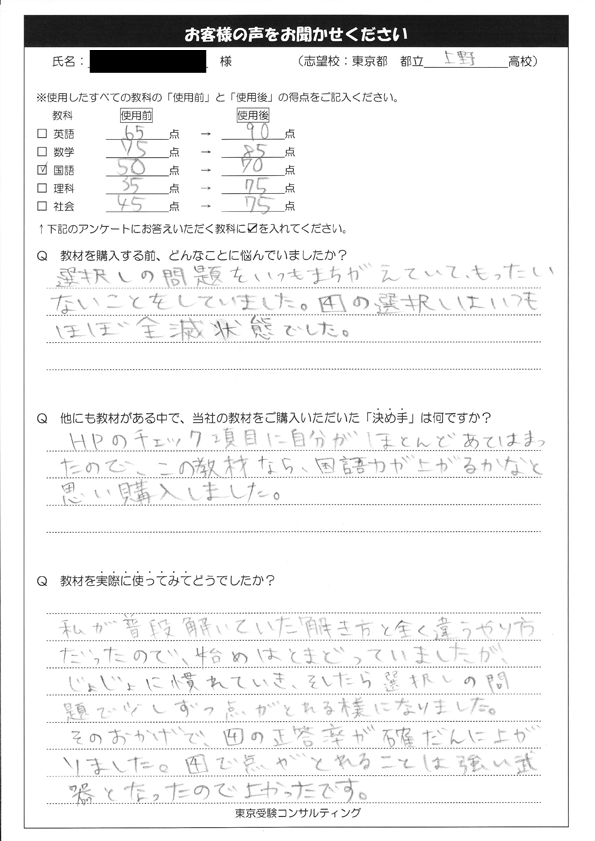 お客様の声をお聞かせください
氏名： 様 （志望校：東京都 都立 上野 高校）
※使用したすべての教科の「使用前」と「使用後」の得点をご記入ください。
教科 使用前 使用後
□ 英語 65 点 → 90 点
□ 数学 75 点 → 85 点
☑ 国語 50 点 → 70 点
□ 理科 35 点 → 75 点
□ 社会 45 点 → 75 点
↑下記のアンケートにお答えいただく教科に☑を入れてください。
Q 教材を購入する前、どんなことに悩んでいましたか？
選択しの問題をいつもまちがえていて、もったい
ないことをしていました。四の選択しはいつも
ほぼ全滅状態でした。
Q 他にも教材がある中で、当社の教材をご購入いただいた「決め手」は何ですか？
HPのチェック項目に自分がほとんどあてはまっ
たので、この教材なら、国語力が上がるかなと
思い購入しました。
Q 教材を実際に使ってみてどうでしたか？
私が普段解いていた解き方と全く違うやり方
だったので、始めはとまどっていましたが、
じょじょに慣れていき、そしたら選択しの問
題で少しずつ点がとれる様になりました。
そのおかげで、四の正答率が確だんに上が
りました。四で点がとれることは強い武
器となったので上かったです。
東京受験コンサルティング